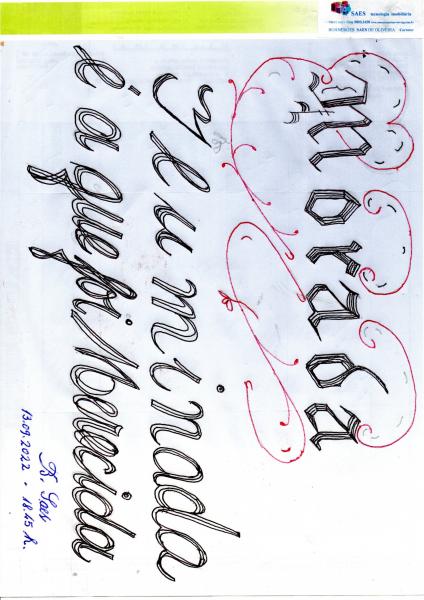 SAES tecnologia imobiliária
BOANERGES SAES DE OLIVEIRA -Corretor
Morada
Iluminada
é a que foi Merecida
B. Saes
13.09.2022 - 18.45 h.